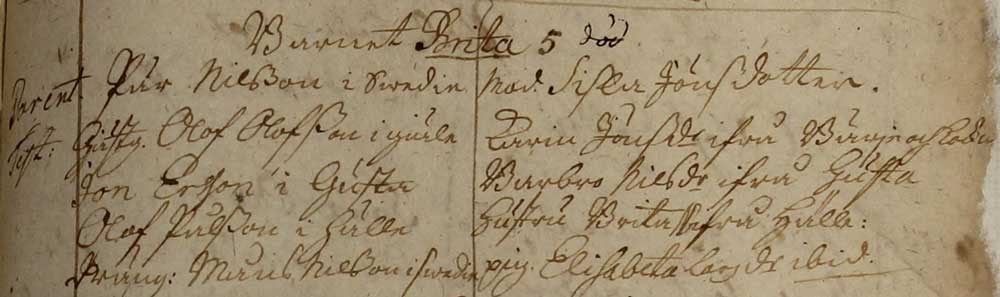 Barnet Brita 5 döö
Parent. Pär Nilsson i Swedie Mod. Sisla Jönsdotter.
Test: Gästg. Olof Olofsson i giäle Karin Jönsdr ifrå
Jon Ersson i Gusta Barbro Nilsdr ifrå Gusta
Olof Pålsson i Hälle Hustru Brita ifrå Hälle:
Dräng: Måns Nilsson i swedie pig. Elisabeta Larsdr ibid.